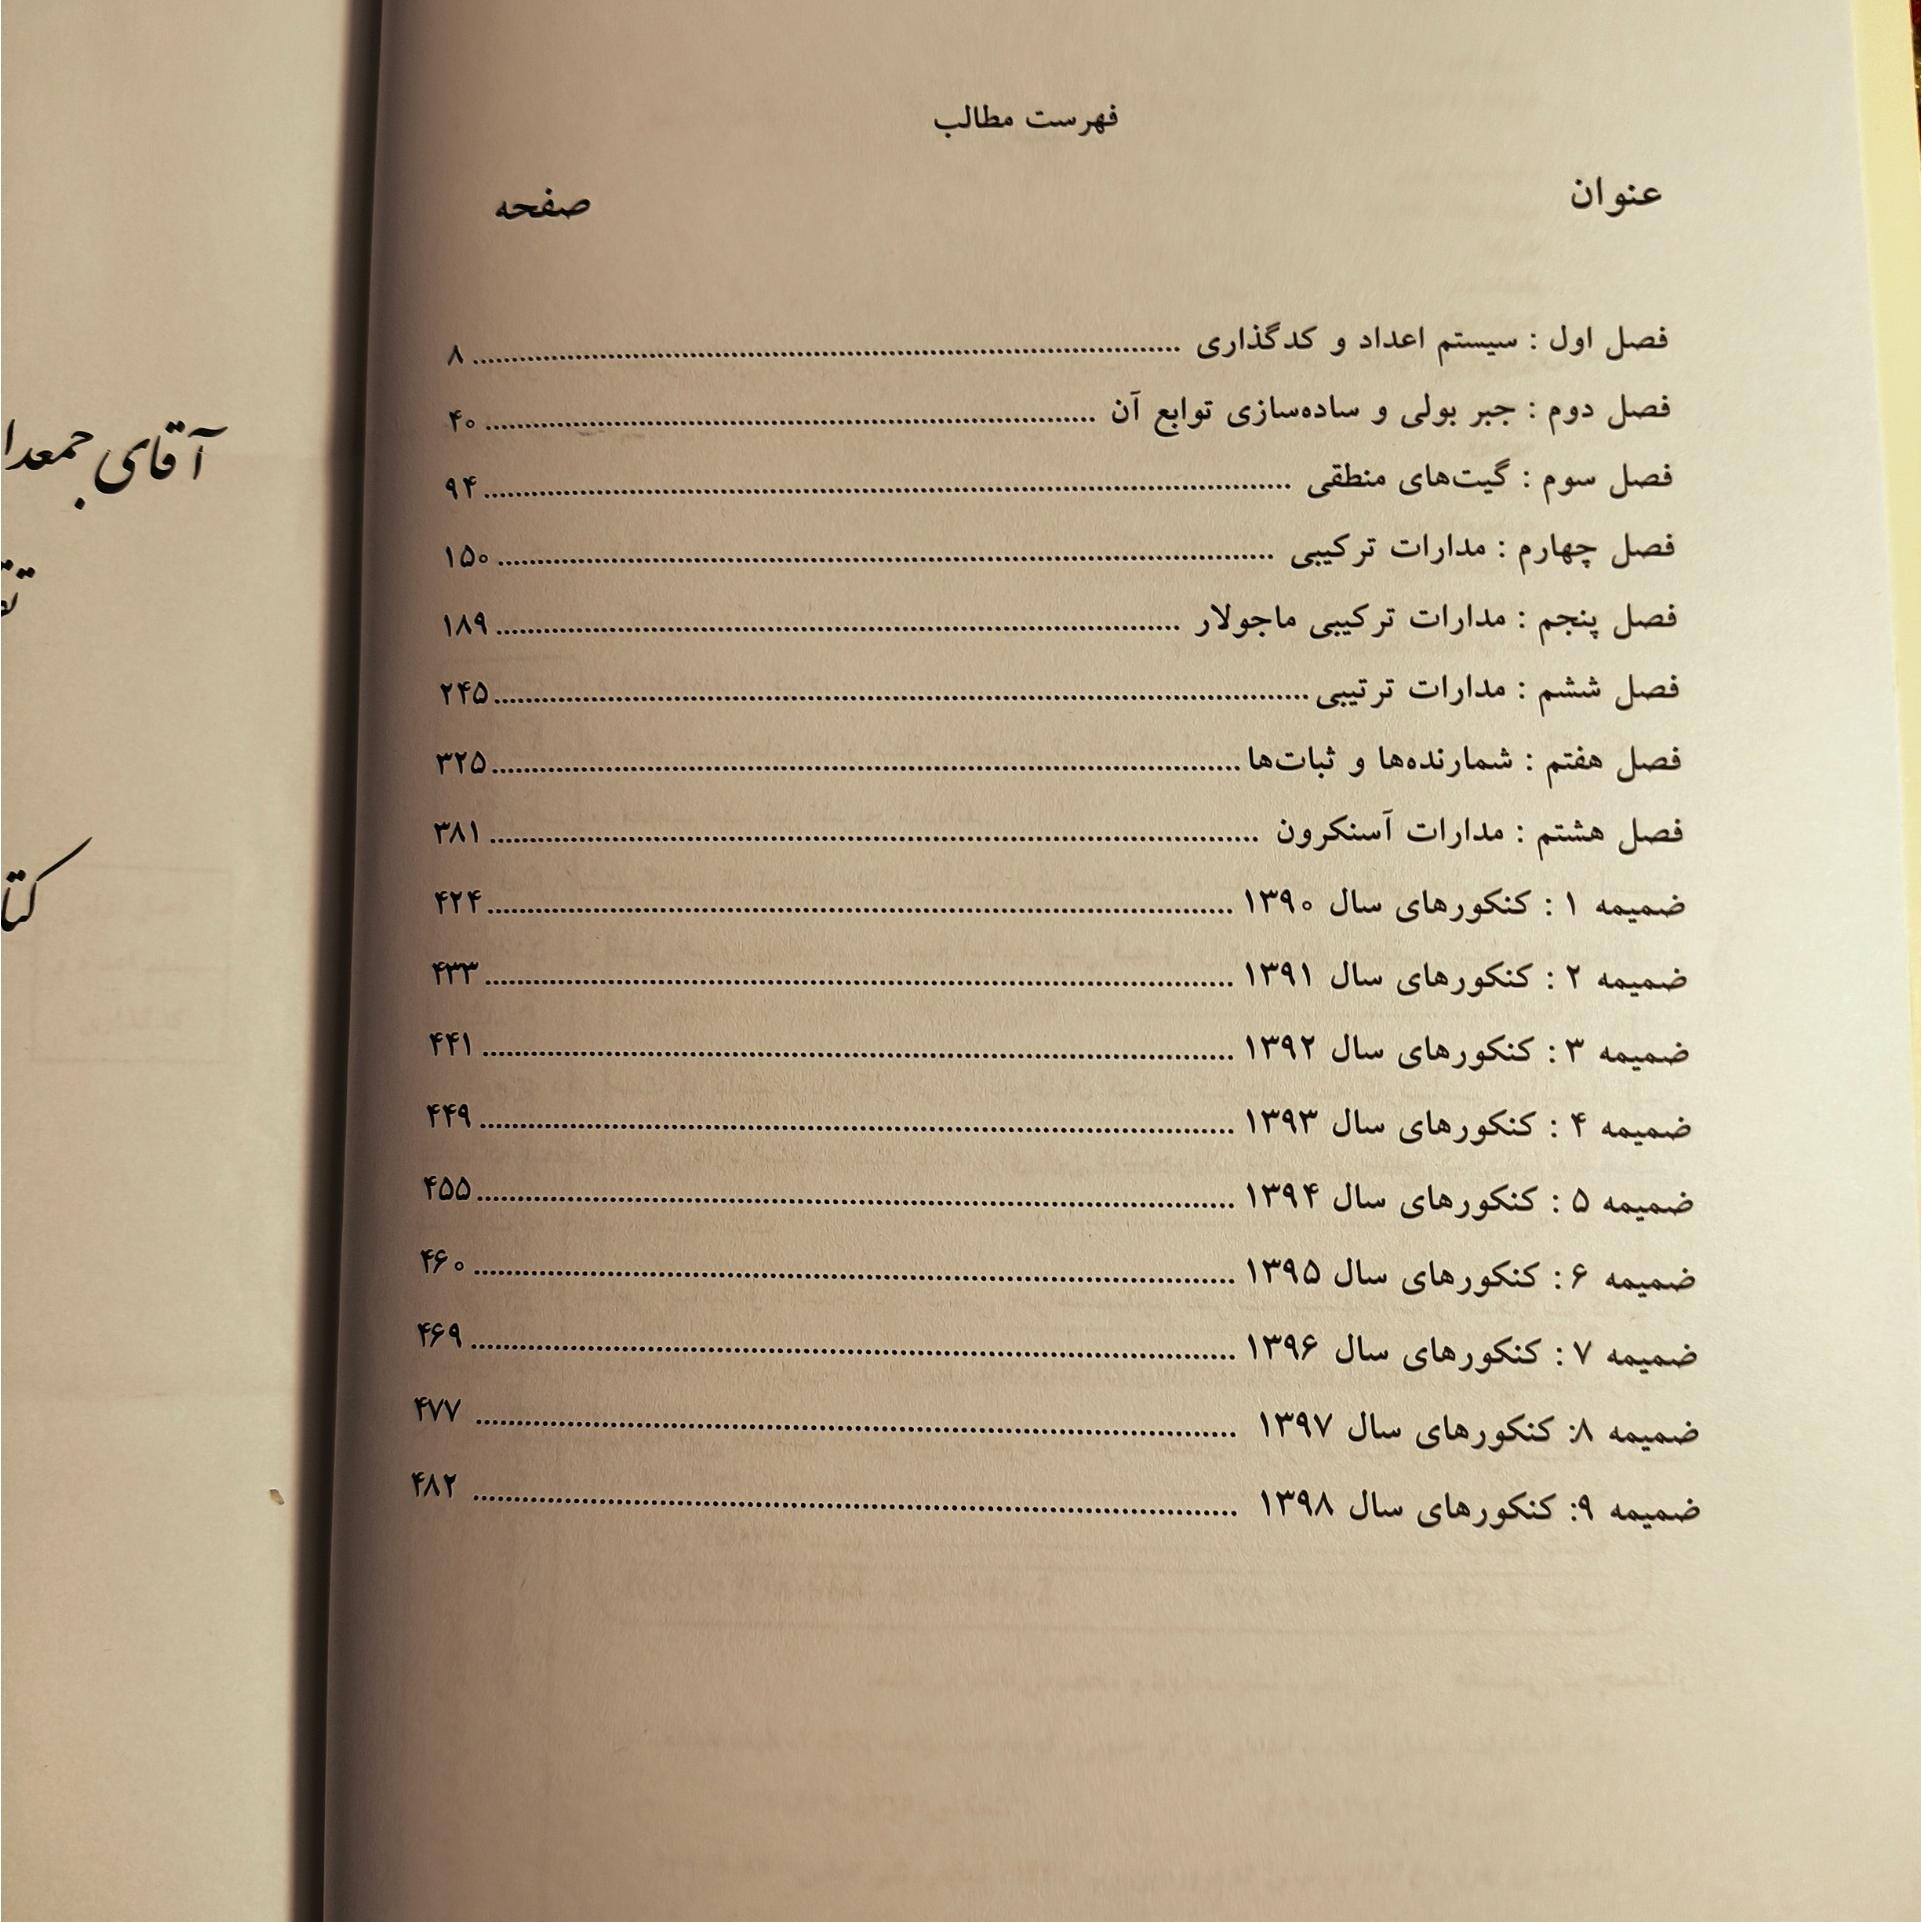 فهرست مطالب
عنوان صفحه
فصل اول : سیستم اعداد و کدگذاری ........ ۸
فصل دوم : جبر بولی و ساده‌سازی توابع آن ........ ۴۰
فصل سوم : گیت‌های منطقی ........ ۹۴
فصل چهارم : مدارات ترکیبی ........ ۱۵۰
فصل پنجم : مدارات ترکیبی ماجولار ........ ۱۸۹
فصل ششم : مدارات ترتیبی ........ ۲۴۵
فصل هفتم : شمارنده‌ها و ثبات‌ها ........ ۳۲۵
فصل هشتم : مدارات آسنکرون ........ ۳۸۱
ضمیمه ۱ : کنکورهای سال ۱۳۹۰ ........ ۴۲۴
ضمیمه ۲ : کنکورهای سال ۱۳۹۱ ........ ۴۳۳
ضمیمه ۳ : کنکورهای سال ۱۳۹۲ ........ ۴۴۱
ضمیمه ۴ : کنکورهای سال ۱۳۹۳ ........ ۴۴۹
ضمیمه ۵ : کنکورهای سال ۱۳۹۴ ........ ۴۵۵
ضمیمه ۶ : کنکورهای سال ۱۳۹۵ ........ ۴۶۰
ضمیمه ۷ : کنکورهای سال ۱۳۹۶ ........ ۴۶۹
ضمیمه ۸: کنکورهای سال ۱۳۹۷ ........ ۴۷۷
ضمیمه ۹: کنکورهای سال ۱۳۹۸ ........ ۴۸۲
آقای